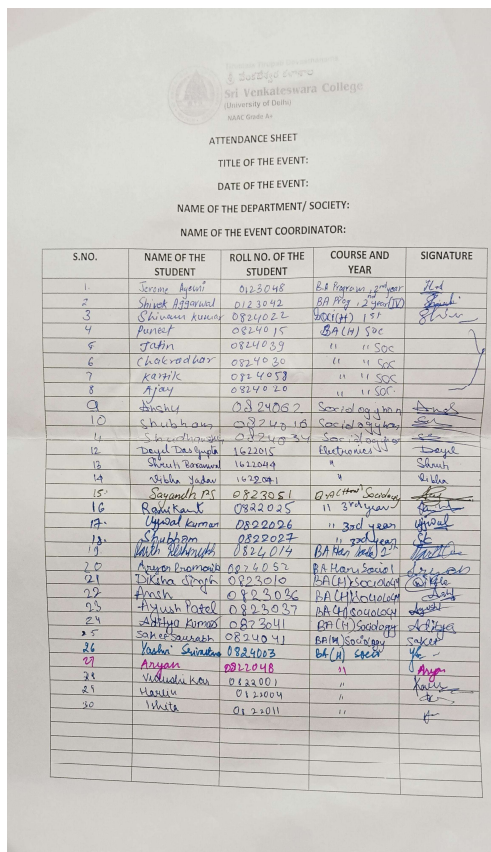 శ్రీ వేంకటేశ్వర కళాశాల
Sri Venkateswara College
(University of Delhi)
NAAC Grade A+
ATTENDANCE SHEET
TITLE OF THE EVENT:
DATE OF THE EVENT:
NAME OF THE DEPARTMENT/ SOCIETY:
NAME OF THE EVENT COORDINATOR:
S.NO. NAME OF THE STUDENT ROLL NO. OF THE STUDENT COURSE AND YEAR SIGNATURE
1. 0123048 BA Program, 2nd year
2 Shivek Aggarwal 0123042 BA Prog, 2nd year (IV)
3 Shivam Kumar 0824022 1st
4 Puneet 0824015 BA(H) Soc
5 Jatin 0824039 " " SOC
6 Chakradhar 0824030 " " SOC
7 Kartik 0824058 " " SOC
8 Ajay 0824020 " " SOC.
9 Anshu 0824062 Sociology hon
10 Shubham 0824016 Sociology hon
0824034
12 Doyel Dasgupta 1622015 Electronics Doyel
13 Shruti 1622049 " Shruti
14 Vibha Yadav " Vibha
15. Sayandh PS 0823051 Sociology
16 Ramikant 0822025 " 3rd year
17. Ujwal Kumar 0822026 " 3rd year Ujwal
18. Shubham 0822027 " 3rd year
19 0824014 BA Hon
20 Aryan 0824052 BA Hons Sociol
21 Diksha Singh 0823010 BA(H) Sociology
22 Ansh 0823036 BA(H) Sociology
23 Ayush Patel 0823037 BA(H) Sociology
24 Aditya Kumar 0823041 BA(H) Sociology Aditya
25 Saket Saurabh 0824041 BA(H) Sociology Saket
26 Yashvi 0824003 BA(H) Socio
27 Aryan 0822048 " Aryan
28 0822001 "
29 0822004 "
30 Ishita 0822011 "